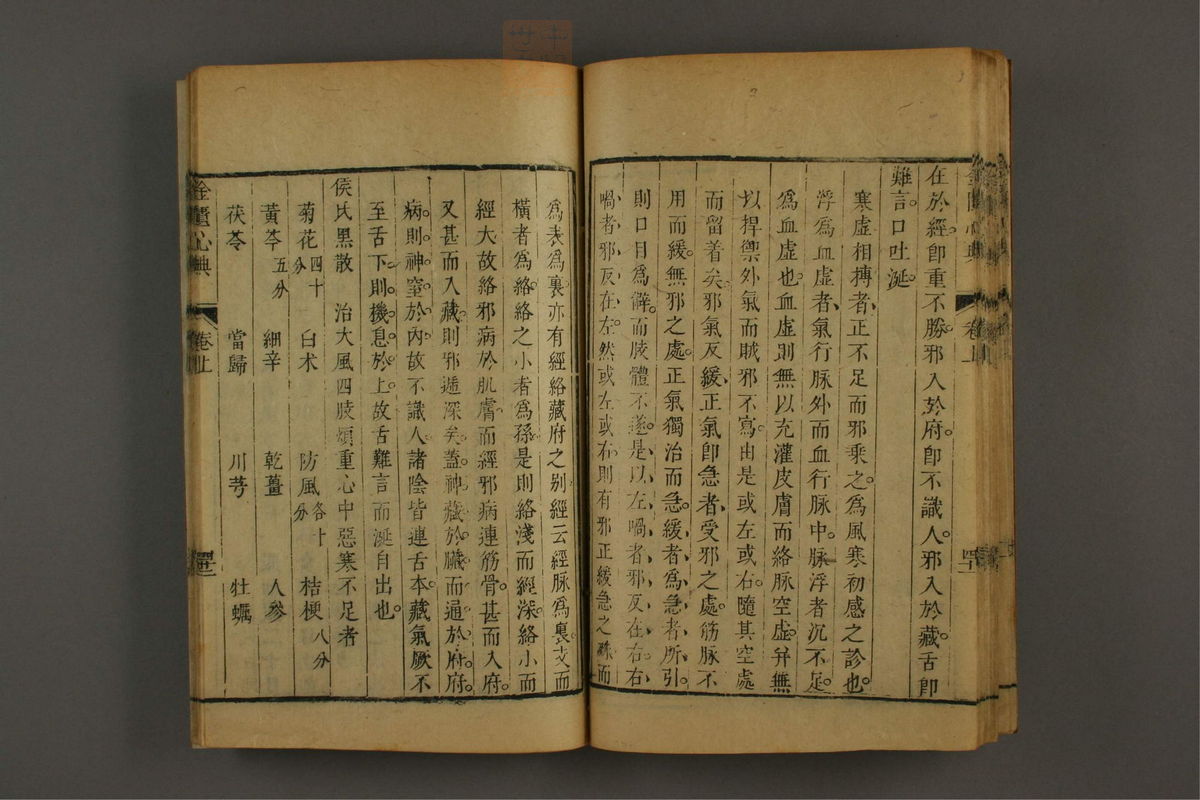 在於經卽重不勝邪入於府卽不識人邪入於藏舌卽
難言口吐涎
寒虛相搏者正不足而邪乘之爲風寒初感之診也
浮爲血虛者氣行脉外而血行脉中脉浮者沉不足
爲血虛也血虛則無以充灌皮膚而絡脉空虛并無
以捍禦外氣而賊邪不瀉由是或左或右隨其空處
而留着矣邪氣反緩正氣卽急者受邪之處筋脉不
用而緩無邪之處正氣獨治而急緩者爲急者所引
則口目爲僻而肢體不遂是以左喎者邪反在右右
喎者邪反在左然或左或右則有邪正緩急之殊而
爲表爲裏亦有經絡藏府之別經云經脉爲裏支而
橫者爲絡絡之小者爲孫是則絡淺而經深絡小而
經大故絡邪病於肌膚而經邪病連筋骨甚而入府
又甚而入藏則邪遞深矣蓋神藏於臟而通於府府
病則神窒於內故不識人諸陰皆連舌本藏氣厥不
至舌下則機息於上故舌難言而涎自出也
侯氏黑散 治大風四肢煩重心中惡寒不足者
菊花四十分 白术 防風各十分 桔梗八分
黃芩五分 細辛 乾薑 人參
茯苓 當歸 川芎 牡蠣
金匱心典 卷上